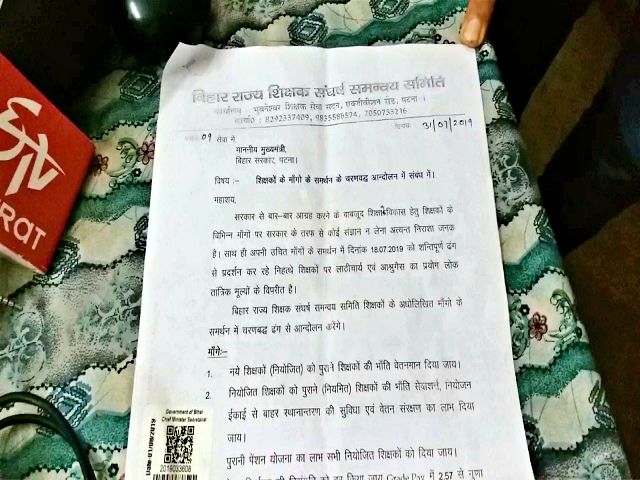 बिहार राज्य शिक्षक संघर्ष समन्वय समिति
कार्यालय - भुवनेश्वर शिक्षक सेवा सदन, एक्जीवीशन रोड, पटना ।
सम्पर्क : 8292337409, 9835586574, 7050753216
09 सेवा में
दिनांक 31/07/2019
माननीय मुख्यमंत्री,
बिहार सरकार, पटना।
विषय :- शिक्षकों के माँगो के समर्थन के चरणवद्ध आन्दोलन में संबंध में।
महाशय,
सरकार से बार-बार आग्रह करने के बाबजूद शिक्षा विकास हेतु शिक्षकों के
विभिन्न माँगो पर सरकार के तरफ से कोई संज्ञान न लेना अत्यन्त निराशा जनक
है। साथ ही अपनी उचित माँगों के समर्थन में दिनांक 18.07.2019 को शन्तिपूर्ण ढंग
से प्रदर्शन कर रहे निहत्थे शिक्षकों पर लाठीचार्य एवं आश्रुगैस का प्रयोग लोक
तांत्रिक मूल्यों के विपरीत है।
बिहार राज्य शिक्षक संघर्ष समन्वय समिति शिक्षकों के अधोलिखित माँगो के
समर्थन में चरणबद्ध ढंग से आन्दोलन करेंगे।
माँगे:-
1. नये शिक्षकों (नियोजित) को पुराने शिक्षकों की भाँति वेतनमान दिया जाय।
2. नियोजित शिक्षकों को पुराने (नियमित) शिक्षकों की भाँति सेवाशर्त्त, नियोजन
ईकाई से बाहर स्थानान्तरण की सुविधा एवं वेतन संरक्षण का लाभ दिया
जाय।
पुरानी पेंशन योजना का लाभ सभी नियोजित शिक्षकों को दिया जाय।
को दूर किया जाय Grade Pay में 2.57 से गुणा
Government of Bihar
Chief Minister Secretariat
Date-01/08/2019
2019033608
ETV
ARAT